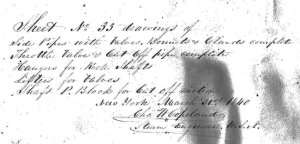 Sheet No 33 drawings of
Side Pipes with Valves, Bonnets & Glands complete
Throttle Valve & Cut Off pipe complete
Hangers for Rock Shafts
Lifters for Valves
Shaft P. Block for Cut off motion
New York March 31st 1840
Chas W Copeland
Steam Engineer U.S.N.